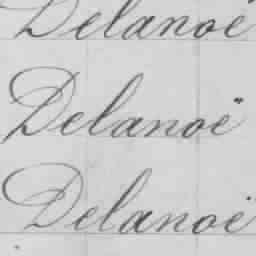 Delanoë
Delanoë
Delanoë